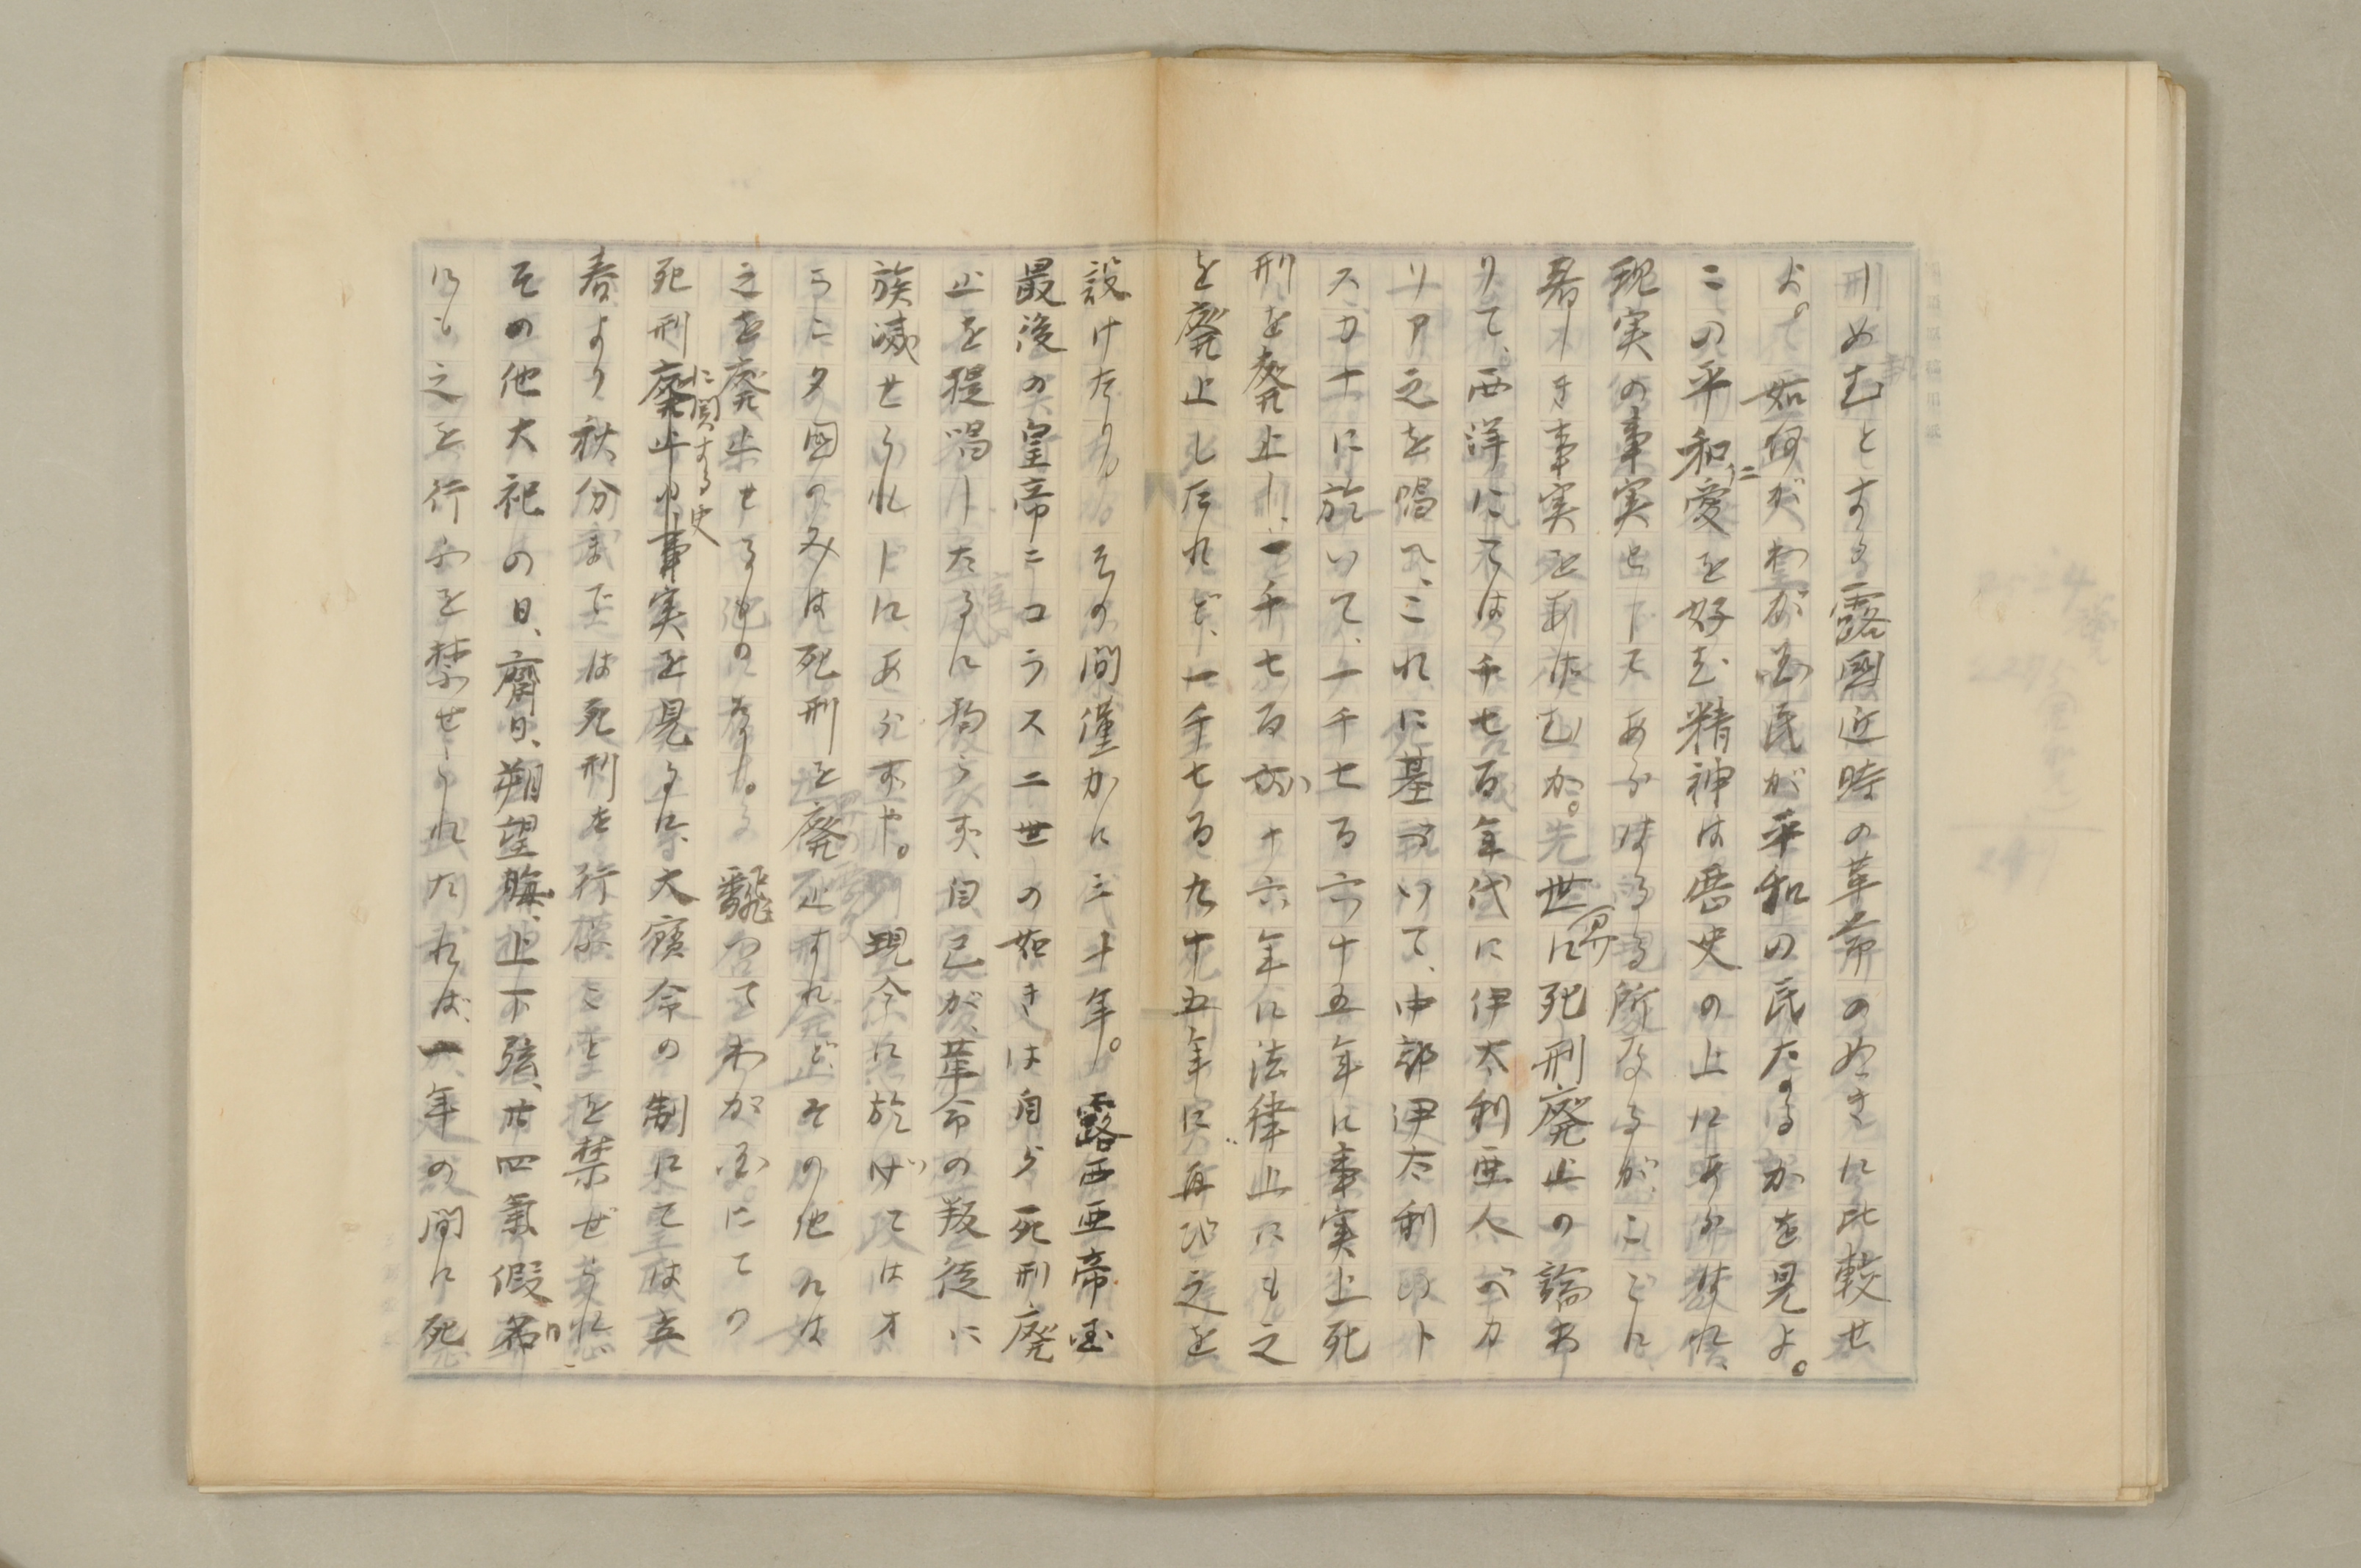 刑めむとする露國近時の革命のめきに比較せ
よ。如何がわが国民が平和の民たるかを見よ。
この平和仁愛を好む精神は歴史の上にあらはれ、
現実の事実としてあらはるる所なるが、ここに
著しき事実をあげむか。世界に死刑廃止の論お
りて、西洋にては千七百年代に伊太利亜人ベカ
リア之を唱へ、これに基づいて、中部伊太利のト
スカナに於いて、一千七百六十五年に事実上死
刑を廃止し、一千七百八十六年に法律上にも之
を廃止したれど、一千七百九十五年に再び之を
設けたり。その間僅かに三十年。露西亜帝国
最後の皇帝ニコラス二世の如きは自ら死刑廃
止を提唱したるに拘らず、自己が革命の叛徒に
族滅せられしにあらずや。現今に於いては才
うに夕國のみは死刑を廃止すれど、その他には
之を廃止せるものなし。飜つてわが国にての
死刑廃止に関する史事実を見るに大寳令の制にては立
春より秋分までは死刑を行ふことを禁ぜられ、
その他大祀の日、齋日、朔望晦、上下弦、廿四氣假名日
にも之を行ふを禁ぜられたれば、一年の間に死